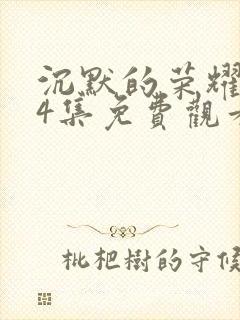 沉默的荣耀
4集免費觀
枇杷樹的守候